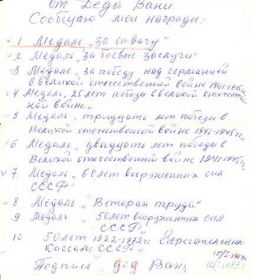 От Деды Вани
Сообщаю мои награды:
1 Медаль "За отвагу"
2 Медаль "За боевые заслуги"
3 Медаль "За победу над германией
в великой отечественной войне 1941-1945
4 Медаль, 25 лет победы в великой отечестве
ной войне"
5 Медаль "тридцать лет победы в
Великой отечественной войне 1941-1945 гг.
6 Медаль "двадцать лет победы в
Великой отечественной войне 1941-1945 г.
7 Медаль "60 лет вооруженных сил
СССР"
8 Медаль "Ветеран труда"
9 Медаль "50 лет вооруженных сил
СССР"
10 50 лет 1922-1972 г.
Кассы СССР"
Подпись дед Ваня